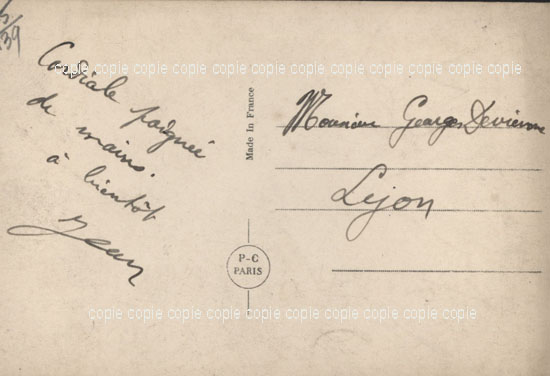 5/
39
Cordiale poignée
de mains.
à bientôt
Jean
Made In France
P-C
PARIS
Monsieur Georges
Lejon
copie copie copie copie copie copie copie copie copie copie copie copie
copie copie copie copie copie copie copie copie copie copie